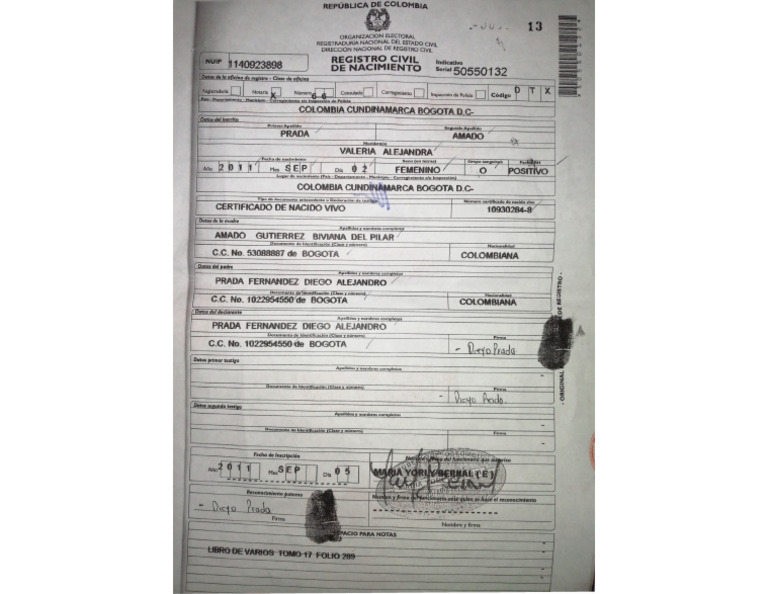 REPÚBLICA DE COLOMBIA
13
ORGANIZACION ELECTORAL
REGISTRADURIA NACIONAL DEL ESTADO CIVIL
DIRECCIÓN NACIONAL DE REGISTRO CIVIL
NUIP 1140923898
REGISTRO CIVIL
DE NACIMIENTO
Indicativo
Serial 50550132
Datos de la oficina de registro - Clase de oficina
Registraduría Notaría X Número 66 Consulado Corregimiento Inspección de Policía Código D T X
País - Departamento - Municipio - Corregimiento e/o Inspección de Policía
COLOMBIA CUNDINAMARCA BOGOTA D.C-
Datos del inscrito
Primer Apellido Segundo Apellido
PRADA AMADO
Nombre(s)
VALERIA ALEJANDRA
Fecha de nacimiento Sexo (en letras) Grupo sanguíneo Factor RH
Año 2011 Mes SEP Día 02 FEMENINO O POSITIVO
Lugar de nacimiento (País - Departamento - Municipio - Corregimiento e/o Inspección)
COLOMBIA CUNDINAMARCA BOGOTA D.C-
Tipo de documento antecedente o Declaración de testigos Número certificado de nacido vivo
CERTIFICADO DE NACIDO VIVO 10930284-8
Datos de la madre
Apellidos y nombres completos
AMADO GUTIERREZ BIVIANA DEL PILAR
Documento de Identificación (Clase y número) Nacionalidad
C.C. No. 53088887 de BOGOTA COLOMBIANA
Datos del padre
Apellidos y nombres completos
PRADA FERNANDEZ DIEGO ALEJANDRO
Documento de Identificación (Clase y número) Nacionalidad
C.C. No. 1022954550 de BOGOTA COLOMBIANA
Datos del declarante
Apellidos y nombres completos
PRADA FERNANDEZ DIEGO ALEJANDRO
Documento de Identificación (Clase y número) Firma
C.C. No. 1022954550 de BOGOTA - Diego Prada
Datos primer testigo
Apellidos y nombres completos
Documento de Identificación (Clase y número) Firma
- Diego Prada.
Datos segundo testigo
Apellidos y nombres completos
Documento de Identificación (Clase y número) Firma
Fecha de inscripción
Año 2011 Mes SEP Día 05
MARIA YORLY BERNAL (E)
Reconocimiento paterno
Nombre y firma del funcionario ante quien se hace el reconocimiento
- Diego Prada
Firma
Nombre y firma
ESPACIO PARA NOTAS
LIBRO DE VARIOS TOMO 17 FOLIO 289
- ORIGINAL
DE REGISTRO -